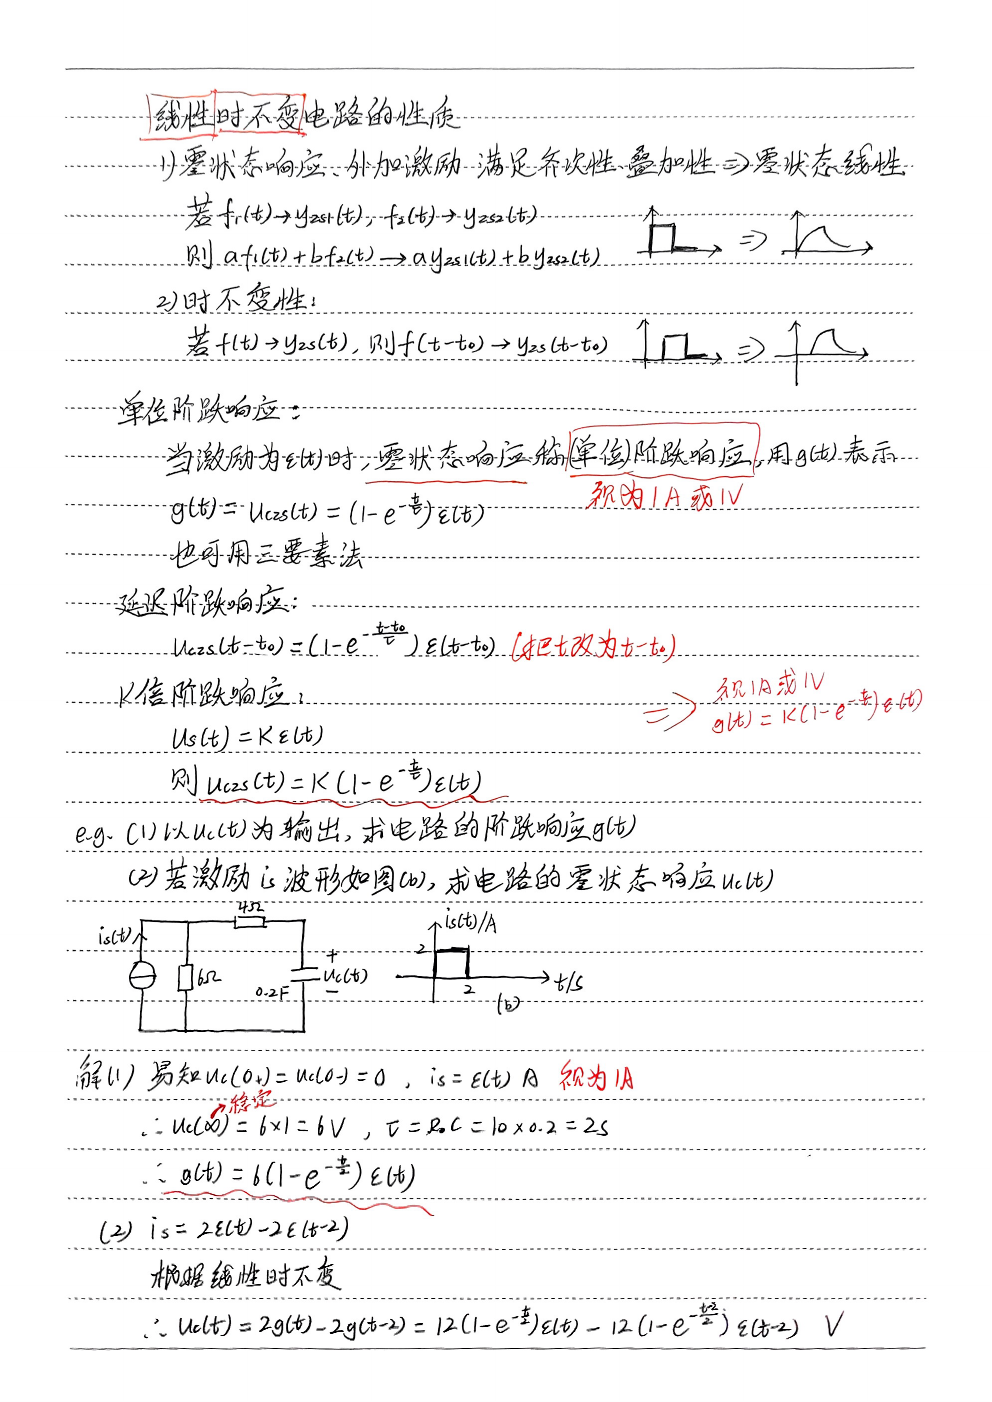 线性时不变电路的性质
1)零状态响应、外加激励 满足齐次性、叠加性⇒零状态线性
若f₁(t)→yzs1(t), f₂(t)→yzs2(t)
则 af₁(t)+bf₂(t)→ayzs1(t)+byzs2(t)
⇒
2)时不变性:
若f(t)→yzs(t), 则f(t-t₀)→yzs(t-t₀)
⇒
单位阶跃响应:
当激励为ε(t)时,零状态响应称(单位)阶跃响应,用g(t)表示
视为1A或1V
g(t)=uczs(t)=(1-e^(-t/τ))ε(t)
也可用三要素法
延迟阶跃响应:
uczs(t-t₀)=(1-e^(-(t-t₀)/τ))ε(t-t₀) (把t改为t-t₀)
K倍阶跃响应:
⇒ 视1A或1V
g(t)=K(1-e^(-t/τ))ε(t)
us(t)=Kε(t)
则 uczs(t)=K(1-e^(-t/τ))ε(t)
e.g. (1)以uc(t)为输出,求电路的阶跃响应g(t)
(2)若激励is波形如图(b),求电路的零状态响应uc(t)
4Ω
is(t)
6Ω
0.2F
+
uc(t)
−
is(t)/A
2
2
t/s
(b)
解(1) 易知uc(0+)=uc(0-)=0 , is=ε(t) A 视为1A
稳定
∴uc(∞)=6×1=6V , τ=R₀C=10×0.2=2s
∴g(t)=6(1-e^(-t/2))ε(t)
(2) is=2ε(t)-2ε(t-2)
根据线性时不变
∴uc(t)=2g(t)-2g(t-2)=12(1-e^(-t/2))ε(t)-12(1-e^(-(t-2)/2))ε(t-2) V